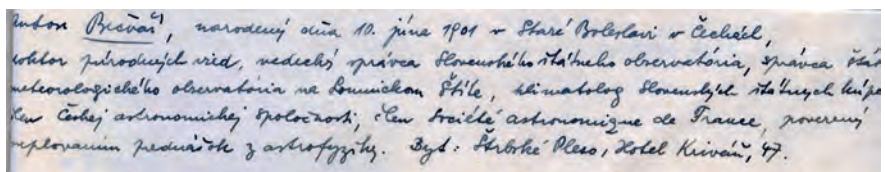 Anton Bečvář, narodený dňa 10. júna 1901 v Staré Boleslavi v Čechách,
doktor prírodných vied, vedecký správca Slovenského štátneho observatória, správca štát
meteorologického observatória na Lomnickom Štíte, klimatolog Slovenských štátnych kúpe
člen Českej astronomickej spoločnosti, člen Société astronomique de France, poverený
suplovaním prednášok z astrofyziky. Byt: Štrbské Pleso, Hotel Kriváň, 47.